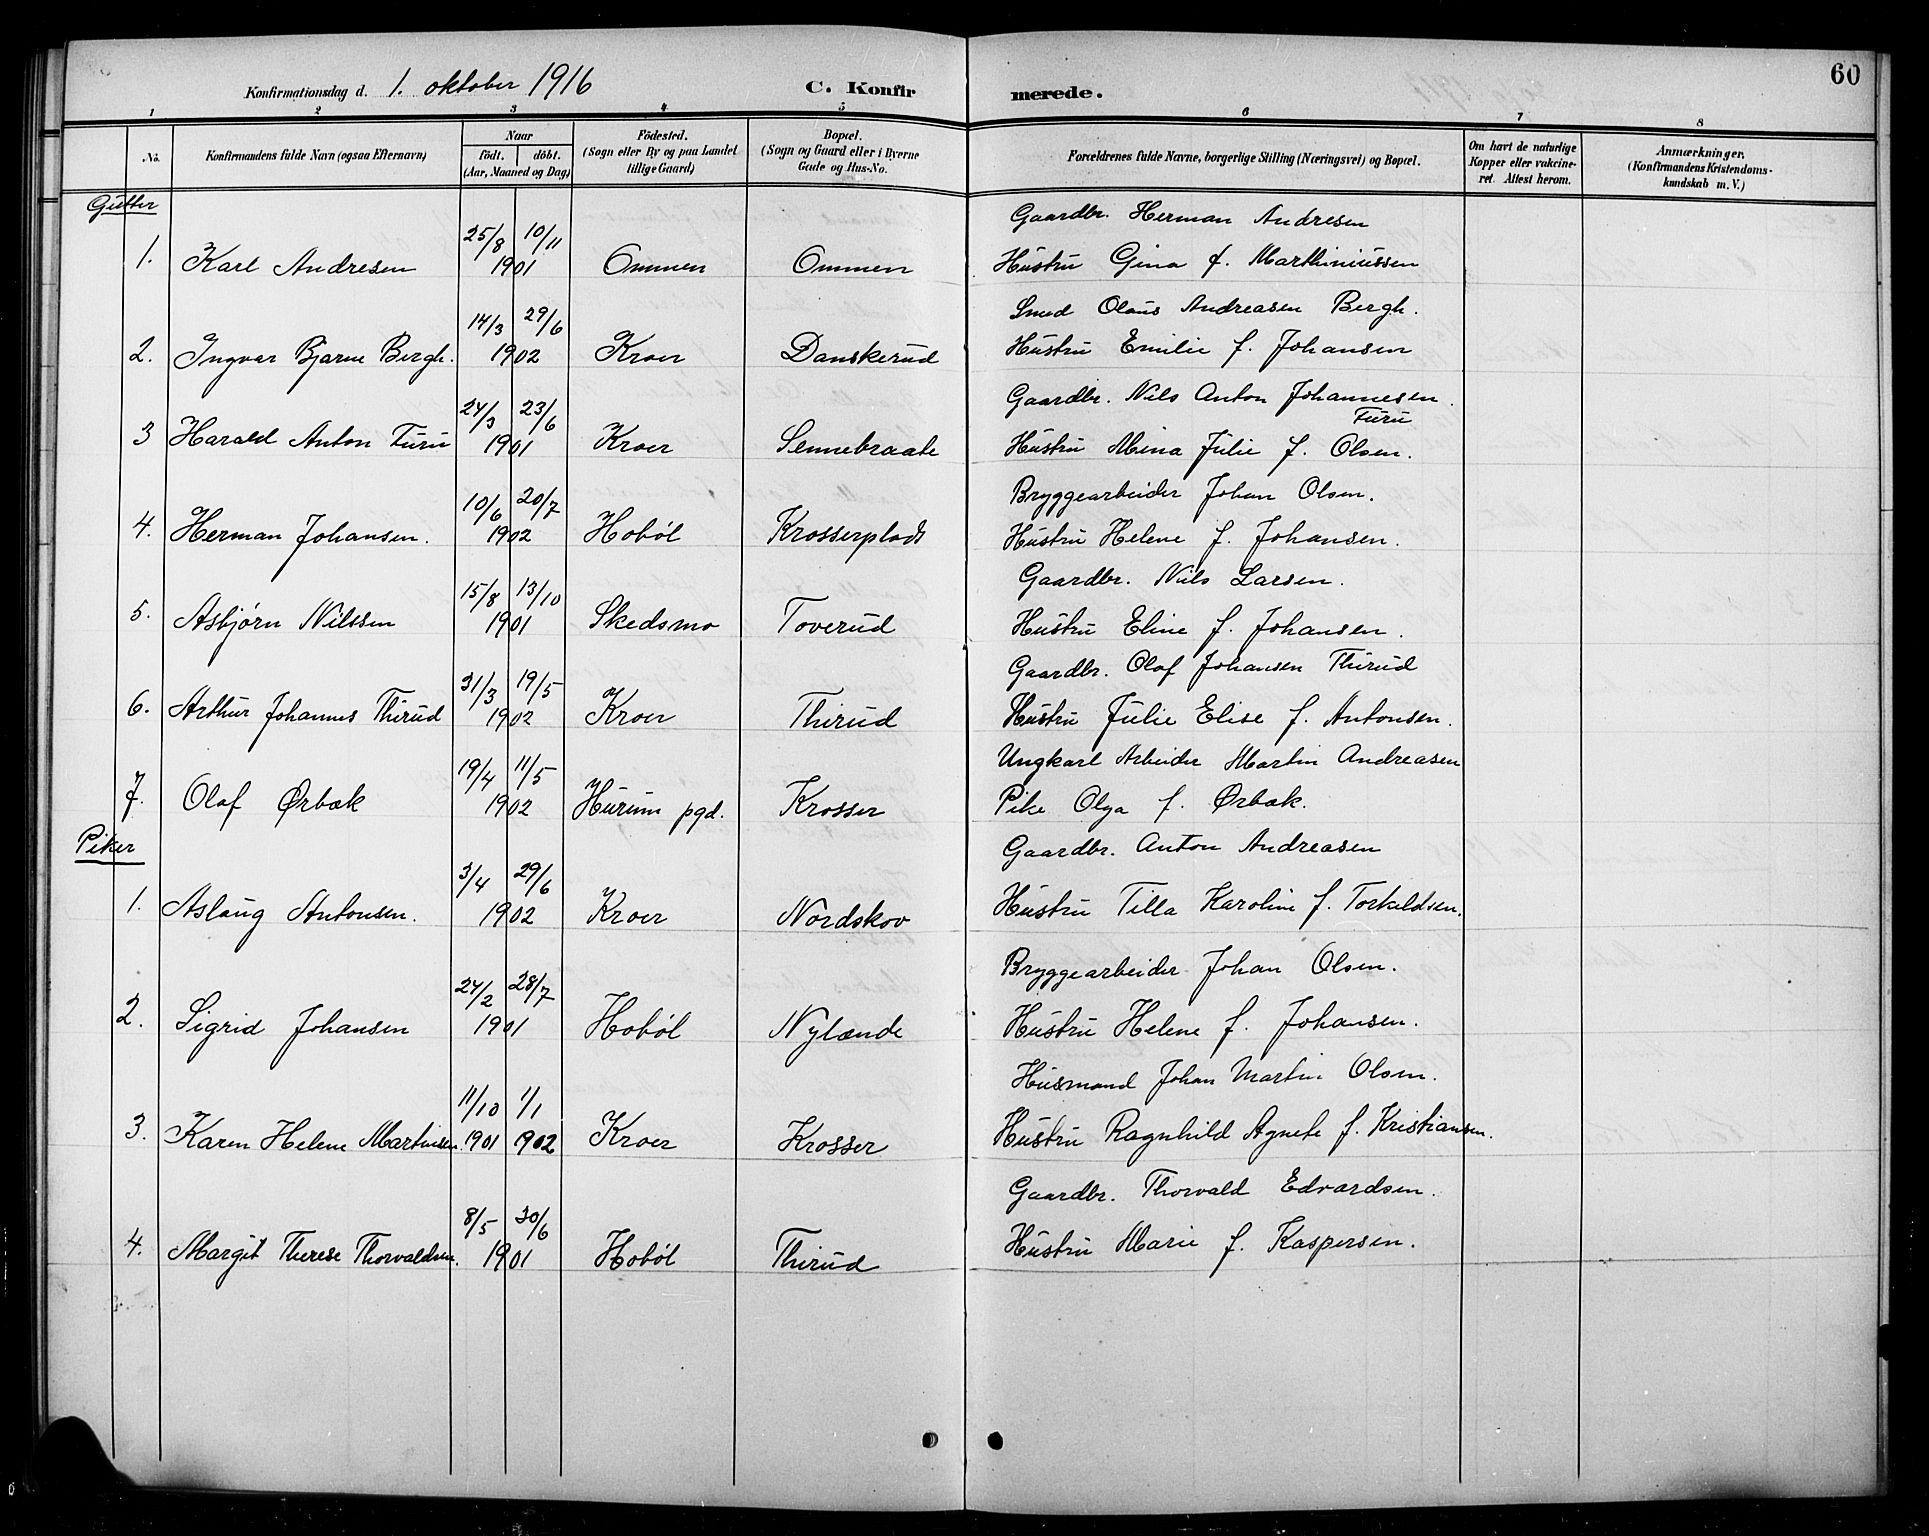 60
Konfirmationsdag d. 1. oktober 1916 C. Konfir merede.
1 2 3 4 5 6 7 8
No. Konfirmandens fulde Navn (ogsaa Efternavn) Naar födt. döbt. (Aar, Maaned og Dag) Födested. (Sogn eller By og paa Landet tillige Gaard) Bopæl. (Sogn og Gaard eller i Byerne Gade og Hus-No. Forældrenes fulde Navne, borgerlige Stilling (Næringsvei) og Bopæl. Om havt de naturlige Kopper eller vakcineret. Attest herom. Anmærkninger. (Konfirmandens Kristendomskundskab m. V.)
Gutter
25/8 10/11 Gaardbr. Herman Andresen
1. Karl Andresen 1901 Ommen Ommen Hustru Gina f. Marthiniussen
14/3 29/6 Smed Olaus Andreasen Bergh.
2. Ingvar Bjarne Bergh. 1902 Kroer Danskerud Hustru Emilie f. Johansen
24/3 23/6 Gaardbr. Nils Anton Johannesen.
Furu
3 Harald Anton Furu 1901 Kroer Sennebraate Hustru Mina Julie f. Olsen.
10/6 20/7 Bryggearbeider Johan Olsen.
4. Herman Johansen. 1902 Hobøl Krosserplads Hustru Helene f. Johansen.
15/8 13/10 Gaardbr. Nils Larsen.
5. Asbjørn Nilssen 1901 Skedsmo Toverud Hustru Eline f. Johansen.
31/3 19/5 Gaardbr. Olaf Johansen Thirud
6. Arthur Johannes Thirud 1902 Kroer Thirud Hustru Julie Elise f. Antonsen.
19/4 11/5 Ungkarl Arbeider Martin Andreasen
7. Olaf Ørbæk 1902 Hurum pgd. Krosser Pike Olga f. Ørbæk.
Piker
3/4 29/6 Gaardbr. Anton Andreasen
1. Aslaug Antonsen. 1902 Kroer Nordskov Hustru Tilla Karoline f. Torkeldsen.
24/2 28/7 Bryggearbeider Johan Olsen.
2. Sigrid Johansen 1901 Hobøl Nylænde Hustru Helene f. Johansen.
11/10 1/1 Husmand Johan Martin Olsen.
3. Karen Helene Martinsen. 1901 1902 Kroer Krosser Hustru Ragnhild Agnete f. Kristiansen.
8/5 30/6 Gaardbr. Thorvald Edvardsen.
4. Margit Therese Thorvaldsen. 1901 Hobøl Thirud Hustru Marie f. Kaspersen.